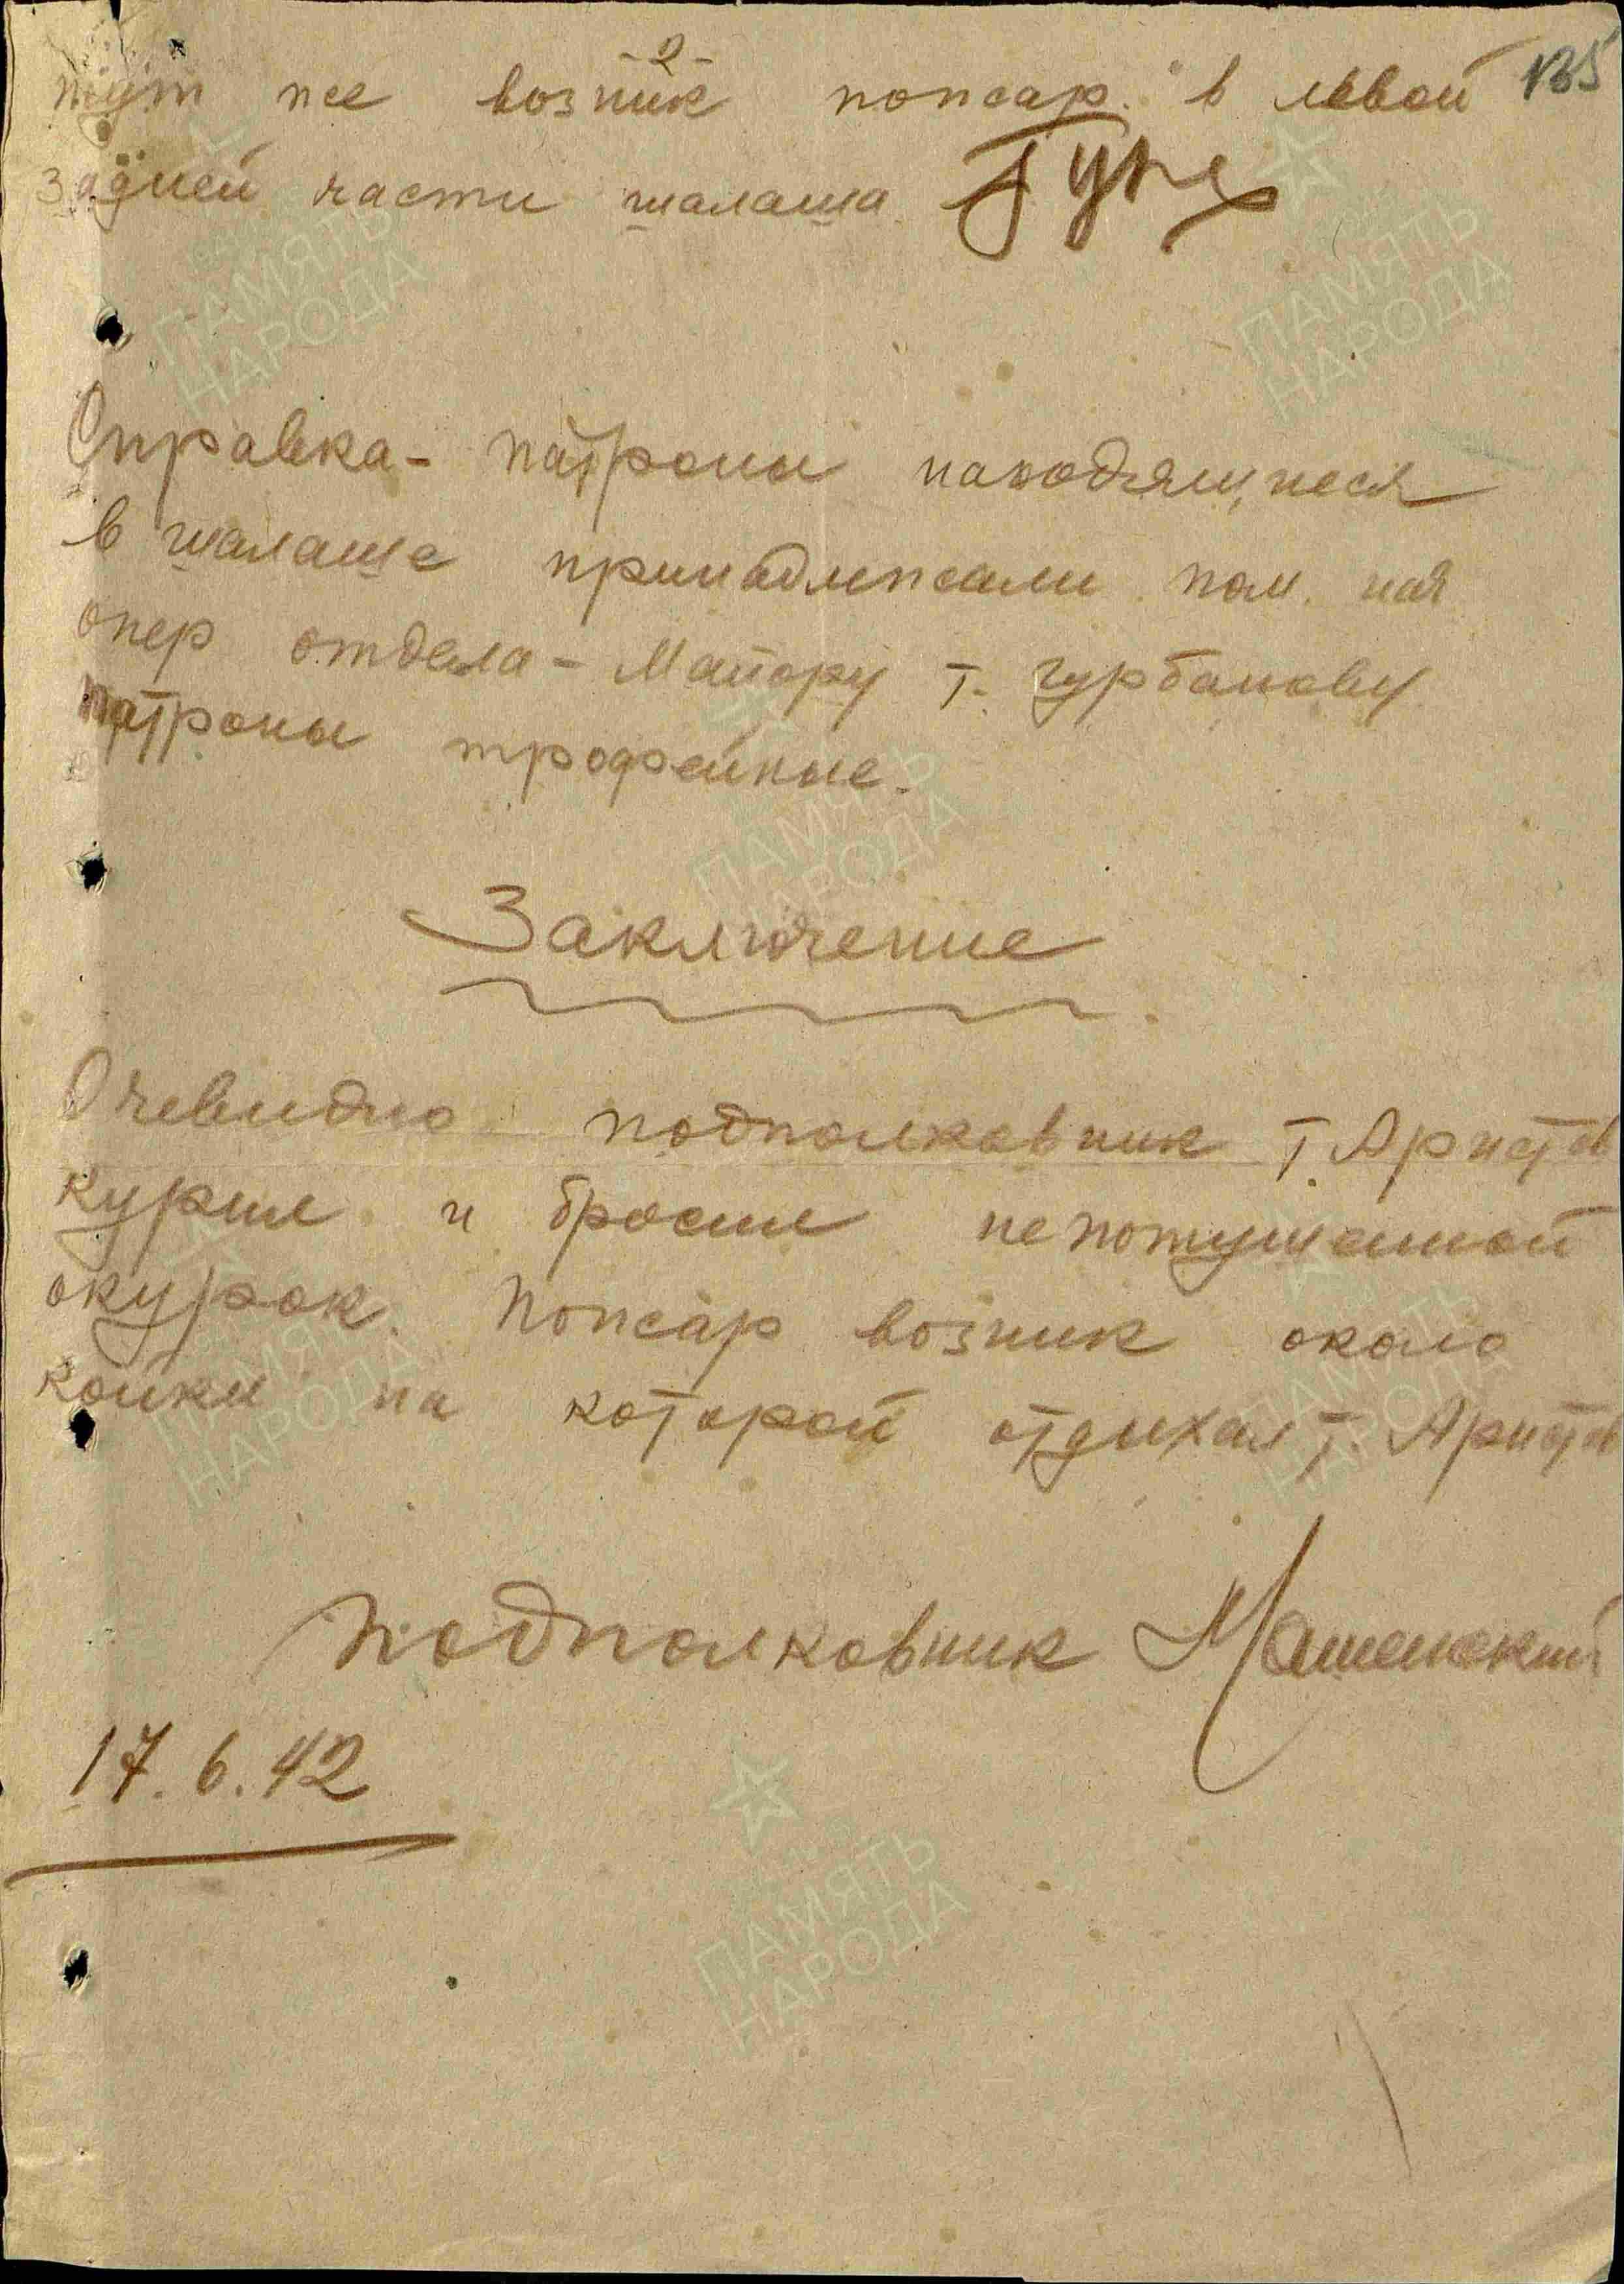 -2-
135
тут же возник пожар в левой
задней части шалаша
Справка - патроны находящиеся
в шалаше принадлежали пом. нач
опер отдела - Майору т. Гурбанову
патроны трофейные.
Заключение
Очевидно подполковник т. Аристов
курил и бросил непотушенной
окурок. Пожар возник около
койки на которой отдыхал т. Аристов
подполковник
17.6.42
ПАМЯТЬ
НАРОДА